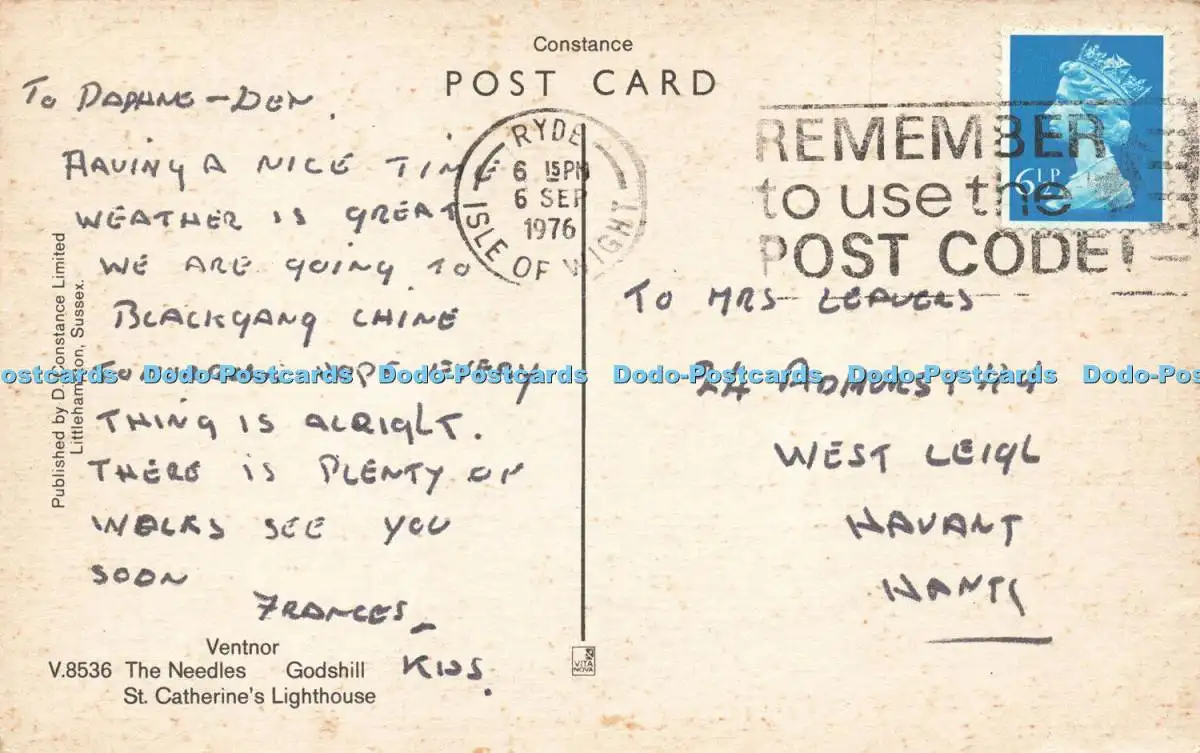 Constance
POST CARD
TO DAPHNE - DEN.
HAVING A NICE TIME
WEATHER IS GREAT
WE ARE GOING TO
BLACKGANG CHINE
HOPE EVERY
THING IS ALRIGHT.
THERE IS PLENTY OF
WALKS SEE YOU
SOON
FRANCES
KIDS.
Published by D. Constance Limited
Littlehampton, Sussex.
Ventnor
V.8536 The Needles Godshill
St. Catherine's Lighthouse
RYDE
6 15PM
6 SEP
1976
ISLE OF WIGHT
REMEMBER
to use the
POST CODE!
6½P
TO MRS LEAVERS
24
WEST LEIGH
HAVANT
HANTS
VITA
NOVA
Dodo-Postcards Dodo-Postcards Dodo-Postcards Dodo-Postcards Dodo-Postcards Dodo-Postcards